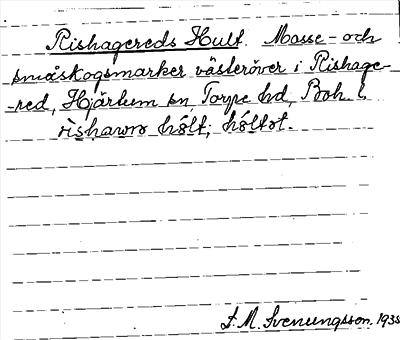 Rishagereds Hult. Mosse- och
småskogsmarker västeröver i Rishage-
-red, Hjärtum sn, Torpe hd, Boh. l.
hòlt; hòltət.
S. M. Svenungsson. 1935